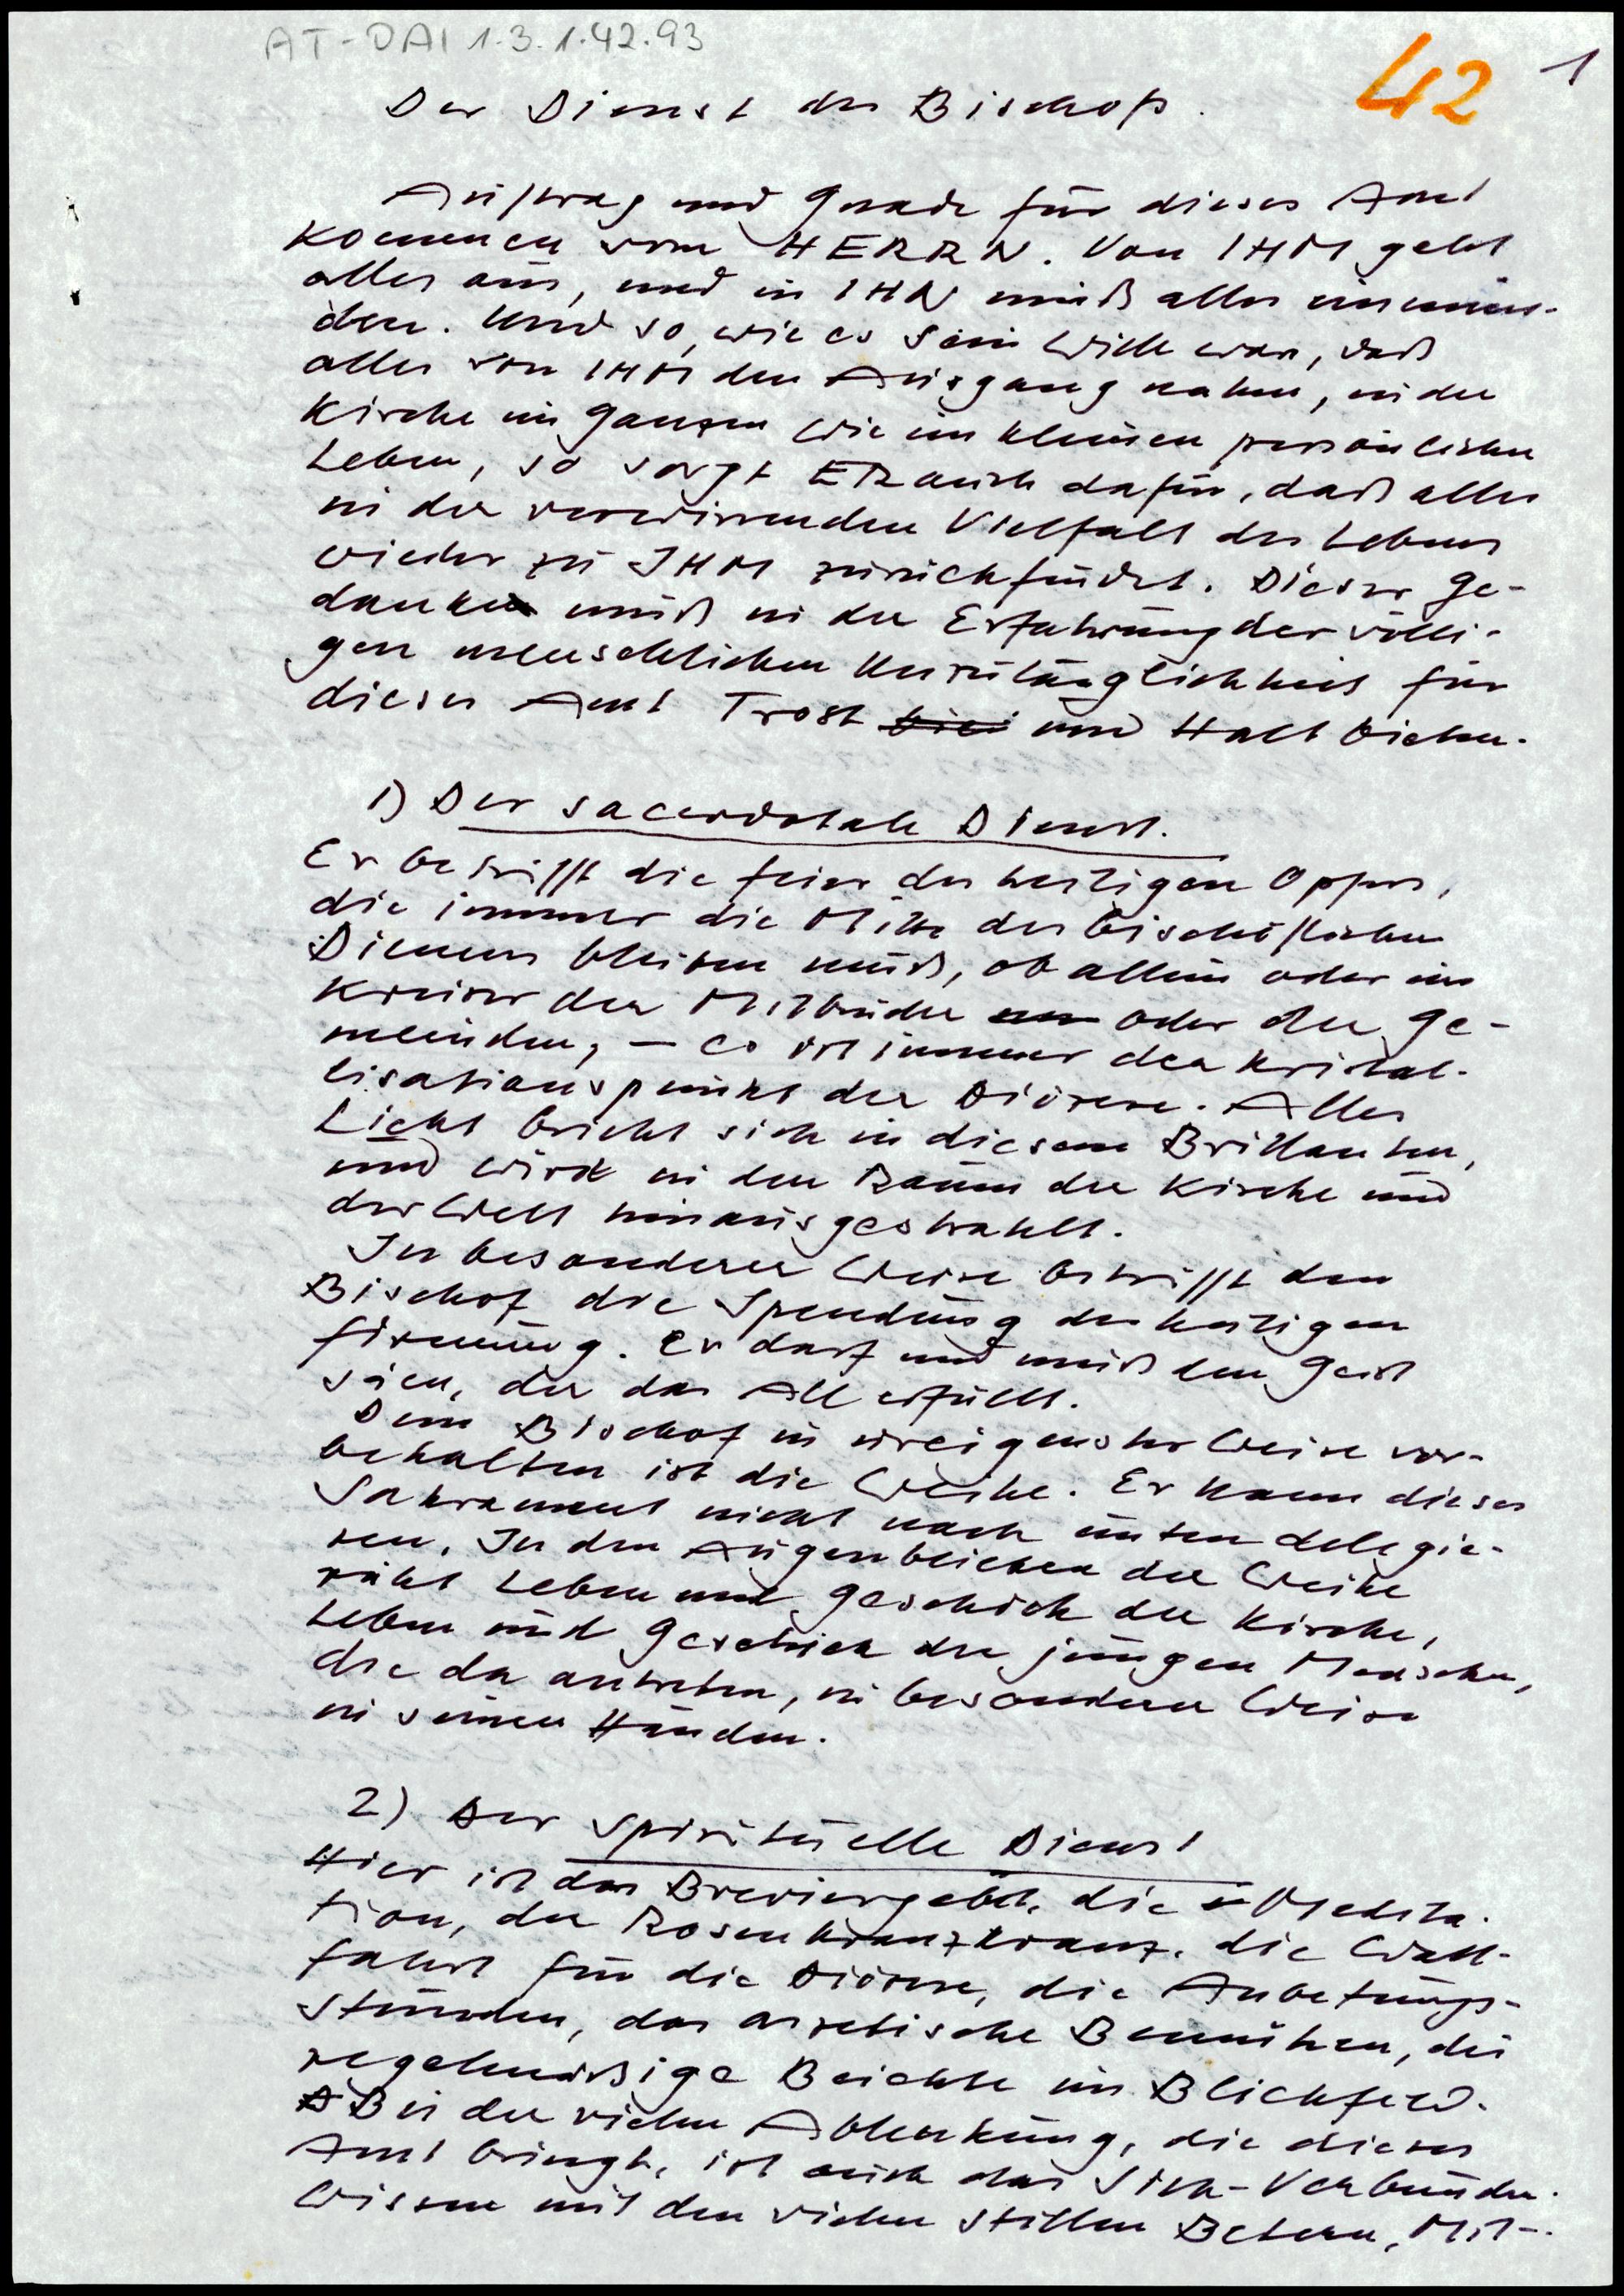 AT-DAI 1.3.1.42.93
42 1
Der Dienst des Bischofs.
Auftrag und Gnade für dieses Amt
kommen vom HERRN. Von IHM geht
alles aus, und in IHN muß alles einmün-
den. Und so, wie es sein Wille war, daß
alles von IHM den Ausgang nahm, in der
Kirche im Ganzen wie im kleinen persönlichen
Leben, so sorgt ER auch dafür, daß alles
in der verwirrenden Vielfalt des Lebens
wieder zu IHM zurückfindet. Dieser Ge-
danke muß in der Erfahrung der völli-
gen menschlichen Unzulänglichkeit für
dieses Amt Trost und Halt bieten.
1) Der sacerdotale Dienst.
Er betrifft die Feier des heiligen Opfers,
die immer die Mitte des bischöflichen
Dienens bleiben muß, ob allein oder im
Kreise der Mitbrüder oder der Ge-
meinden, – es ist immer der Kristal-
lisationspunkt der Diözese. Alles
Licht bricht sich in diesem Brillanten,
und wird in den Raum der Kirche und
der Welt hinausgestrahlt.
In besonderer Weise betrifft den
Bischof die Spendung der heiligen
Firmung. Er darf und muß den Geist
säen, der das All erfüllt.
Dem Bischof in ureigenster Weise vor-
behalten ist die Weihe. Er kann dieses
Sakrament nicht nach unten delegie-
ren. In den Augenblicken der Weihe
ruht Leben und Geschick der Kirche,
Leben und Geschick der jungen Menschen,
die da antreten, in besonderer Weise
in seinen Händen.
2) Der spirituelle Dienst
Hier ist das Breviergebet, die Medita-
tion, der Rosenkranzkranz, die Wall-
fahrt für die Diözese, die Anbetungs-
stunden, das asketische Bemühen, die
regelmäßige Beichte im Blickfeld.
Bei der vielen Ablenkung, die dieses
Amt bringt, ist auch das Sich-Verbunden-
Wissen mit den vielen stillen Betern, Mit-